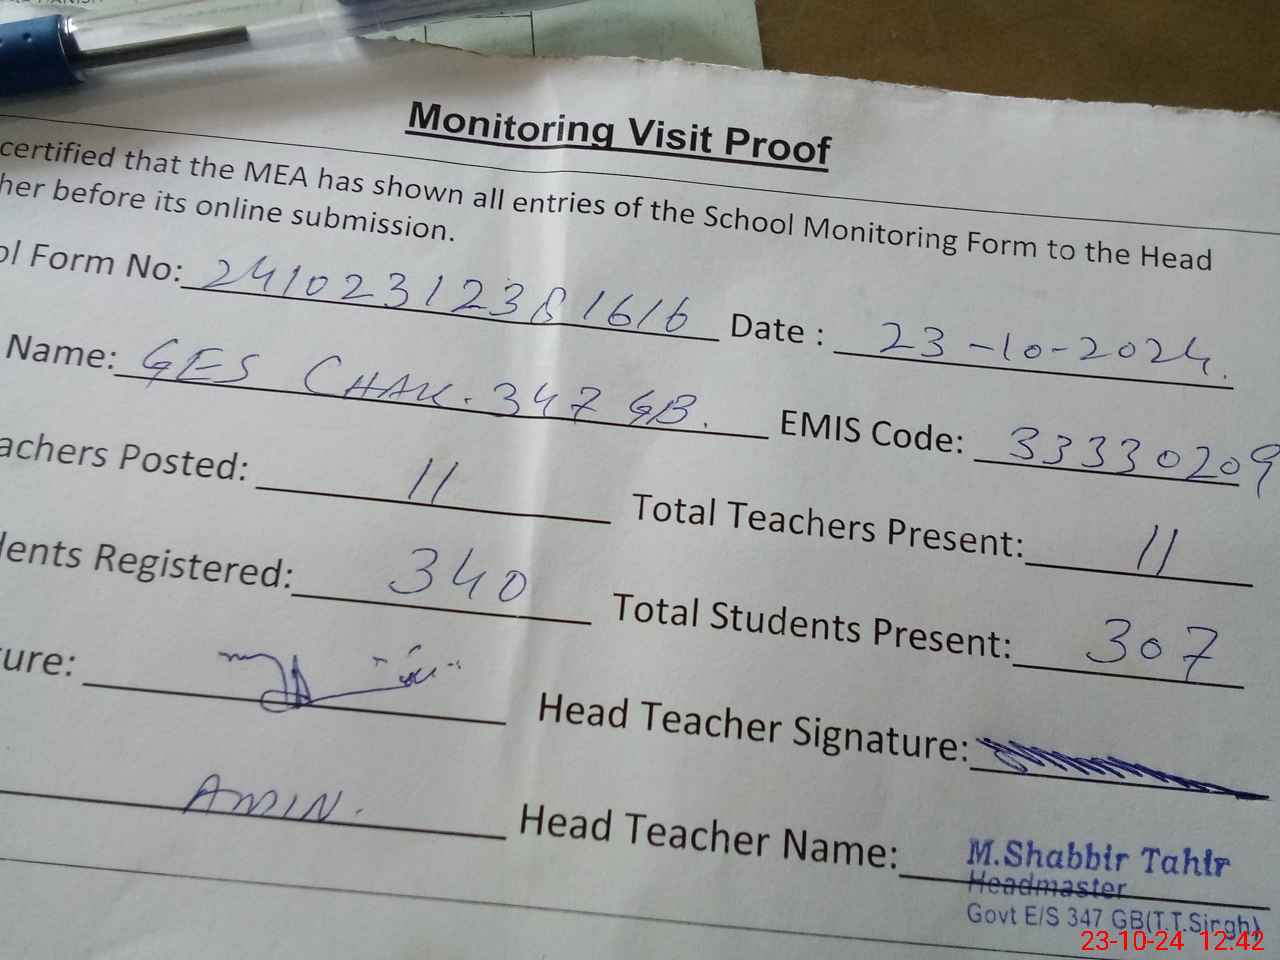 Monitoring Visit Proof
certified that the MEA has shown all entries of the School Monitoring Form to the Head
her before its online submission.
ol Form No: 24102312381616 Date : 23-10-2024.
Name: GES CHAK. 347 GB. EMIS Code: 33330209
achers Posted: 11 Total Teachers Present: 11
dents Registered: 340 Total Students Present: 307
ture: Head Teacher Signature:
AMIN. Head Teacher Name: M.Shabbir Tahir
Headmaster
Govt E/S 347 GB(T.T.Singh)
23-10-24 12:42